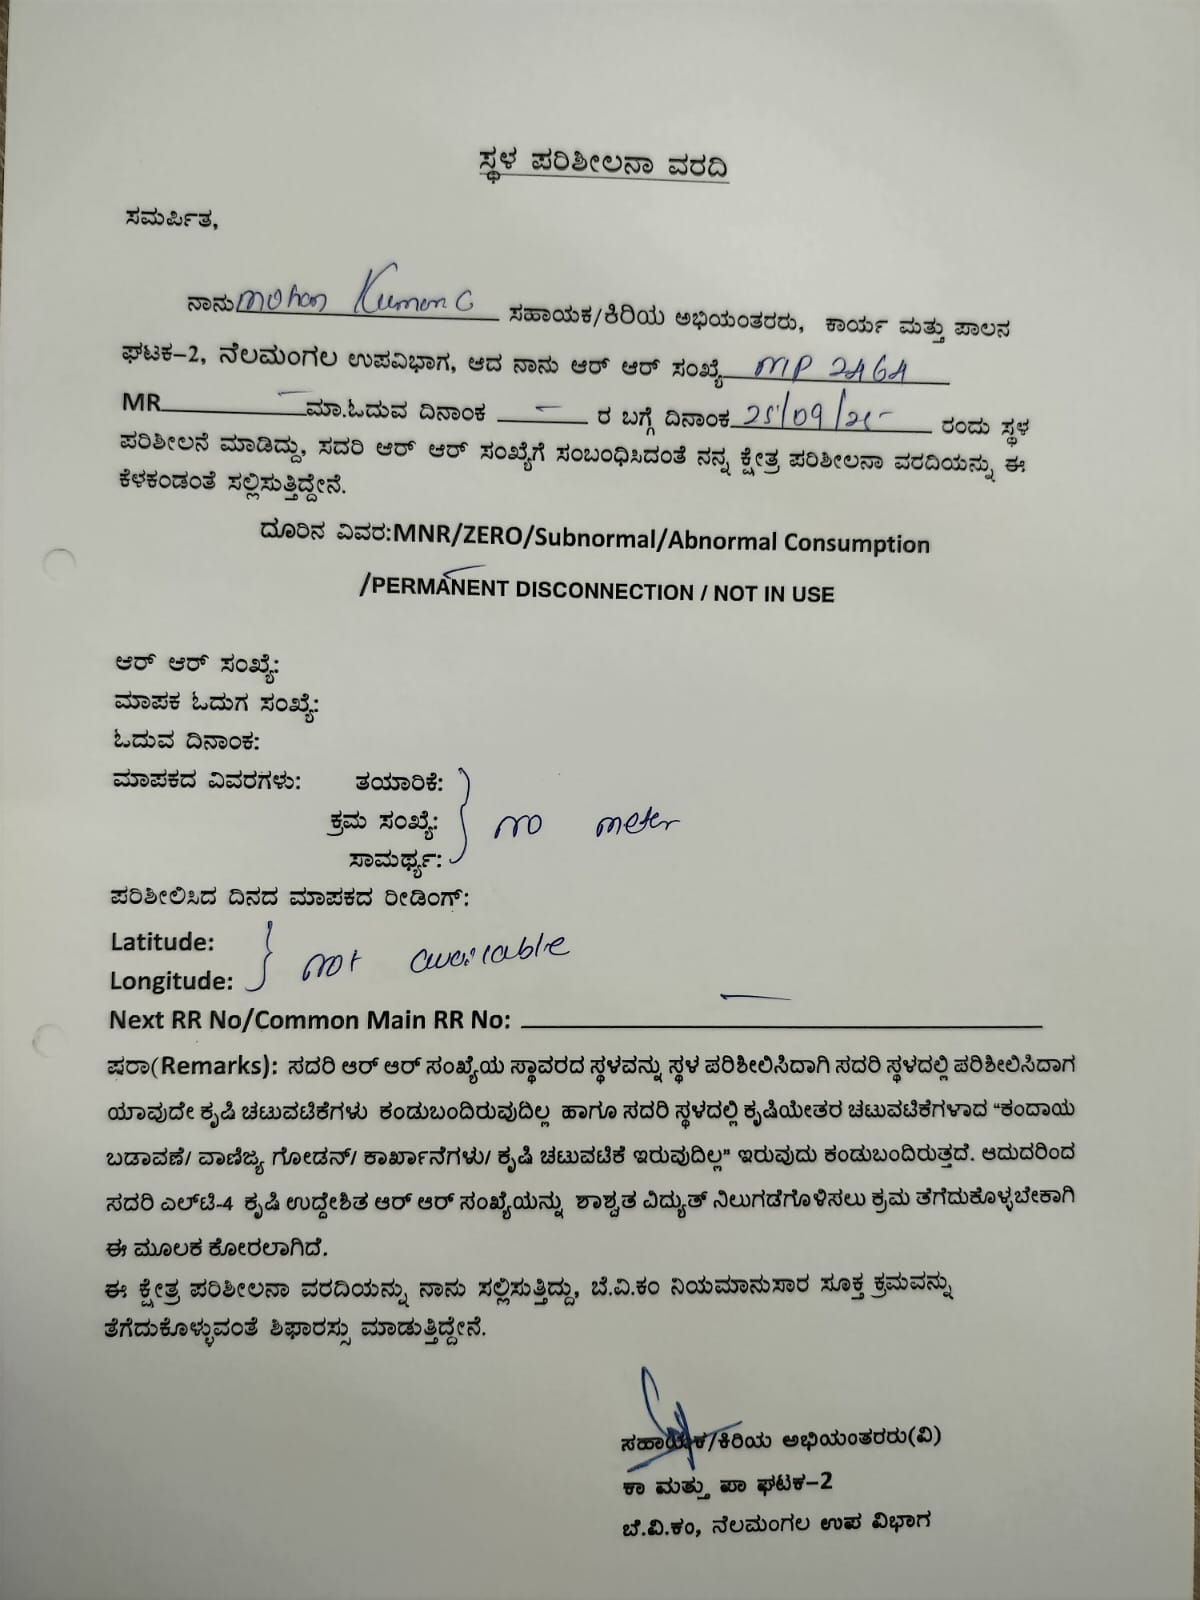 ಸ್ಥಳ ಪರಿಶೀಲನಾ ವರದಿ
ಸಮರ್ಪಿತ,
ನಾನು mohan Kumar C ಸಹಾಯಕ/ಕಿರಿಯ ಅಭಿಯಂತರರು, ಕಾರ್ಯ ಮತ್ತು ಪಾಲನ
ಘಟಕ–2, ನೆಲಮಂಗಲ ಉಪವಿಭಾಗ, ಆದ ನಾನು ಆರ್ ಆರ್ ಸಂಖ್ಯೆ MP 2464
MR – ಮಾ.ಓದುವ ದಿನಾಂಕ – ರ ಬಗ್ಗೆ ದಿನಾಂಕ 25/09/25 ರಂದು ಸ್ಥಳ
ಪರಿಶೀಲನೆ ಮಾಡಿದ್ದು, ಸದರಿ ಆರ್ ಆರ್ ಸಂಖ್ಯೆಗೆ ಸಂಬಂಧಿಸಿದಂತೆ ನನ್ನ ಕ್ಷೇತ್ರ ಪರಿಶೀಲನಾ ವರದಿಯನ್ನು ಈ
ಕೆಳಕಂಡಂತೆ ಸಲ್ಲಿಸುತ್ತಿದ್ದೇನೆ.
ದೂರಿನ ವಿವರ:MNR/ZERO/Subnormal/Abnormal Consumption
/PERMANENT DISCONNECTION / NOT IN USE
ಆರ್ ಆರ್ ಸಂಖ್ಯೆ:
ಮಾಪಕ ಓದುಗ ಸಂಖ್ಯೆ:
ಓದುವ ದಿನಾಂಕ:
ಮಾಪಕದ ವಿವರಗಳು: ತಯಾರಿಕೆ:
ಕ್ರಮ ಸಂಖ್ಯೆ: no meter
ಸಾಮರ್ಥ್ಯ:
ಪರಿಶೀಲಿಸಿದ ದಿನದ ಮಾಪಕದ ರೀಡಿಂಗ್:
Latitude: not available
Longitude:
Next RR No/Common Main RR No: –
ಷರಾ(Remarks): ಸದರಿ ಆರ್ ಆರ್ ಸಂಖ್ಯೆಯ ಸ್ಥಾವರದ ಸ್ಥಳವನ್ನು ಸ್ಥಳ ಪರಿಶೀಲಿಸಿದಾಗಿ ಸದರಿ ಸ್ಥಳದಲ್ಲಿ ಪರಿಶೀಲಿಸಿದಾಗ
ಯಾವುದೇ ಕೃಷಿ ಚಟುವಟಿಕೆಗಳು ಕಂಡುಬಂದಿರುವುದಿಲ್ಲ ಹಾಗೂ ಸದರಿ ಸ್ಥಳದಲ್ಲಿ ಕೃಷಿಯೇತರ ಚಟುವಟಿಕೆಗಳಾದ “ಕಂದಾಯ
ಬಡಾವಣೆ/ ವಾಣಿಜ್ಯ ಗೋಡನ್/ ಕಾರ್ಖಾನೆಗಳು/ ಕೃಷಿ ಚಟುವಟಿಕೆ ಇರುವುದಿಲ್ಲ” ಇರುವುದು ಕಂಡುಬಂದಿರುತ್ತದೆ. ಆದುದರಿಂದ
ಸದರಿ ಎಲ್‌ಟಿ-4 ಕೃಷಿ ಉದ್ದೇಶಿತ ಆರ್ ಆರ್ ಸಂಖ್ಯೆಯನ್ನು ಶಾಶ್ವತ ವಿದ್ಯುತ್ ನಿಲುಗಡೆಗೊಳಿಸಲು ಕ್ರಮ ತೆಗೆದುಕೊಳ್ಳಬೇಕಾಗಿ
ಈ ಮೂಲಕ ಕೋರಲಾಗಿದೆ.
ಈ ಕ್ಷೇತ್ರ ಪರಿಶೀಲನಾ ವರದಿಯನ್ನು ನಾನು ಸಲ್ಲಿಸುತ್ತಿದ್ದು, ಬೆ.ವಿ.ಕಂ ನಿಯಮಾನುಸಾರ ಸೂಕ್ತ ಕ್ರಮವನ್ನು
ತೆಗೆದುಕೊಳ್ಳುವಂತೆ ಶಿಫಾರಸ್ಸು ಮಾಡುತ್ತಿದ್ದೇನೆ.
ಸಹಾಯಕ/ಕಿರಿಯ ಅಭಿಯಂತರರು(ವಿ)
ಕಾ ಮತ್ತು ಪಾ ಘಟಕ–2
ಬೆ.ವಿ.ಕಂ, ನೆಲಮಂಗಲ ಉಪ ವಿಭಾಗ